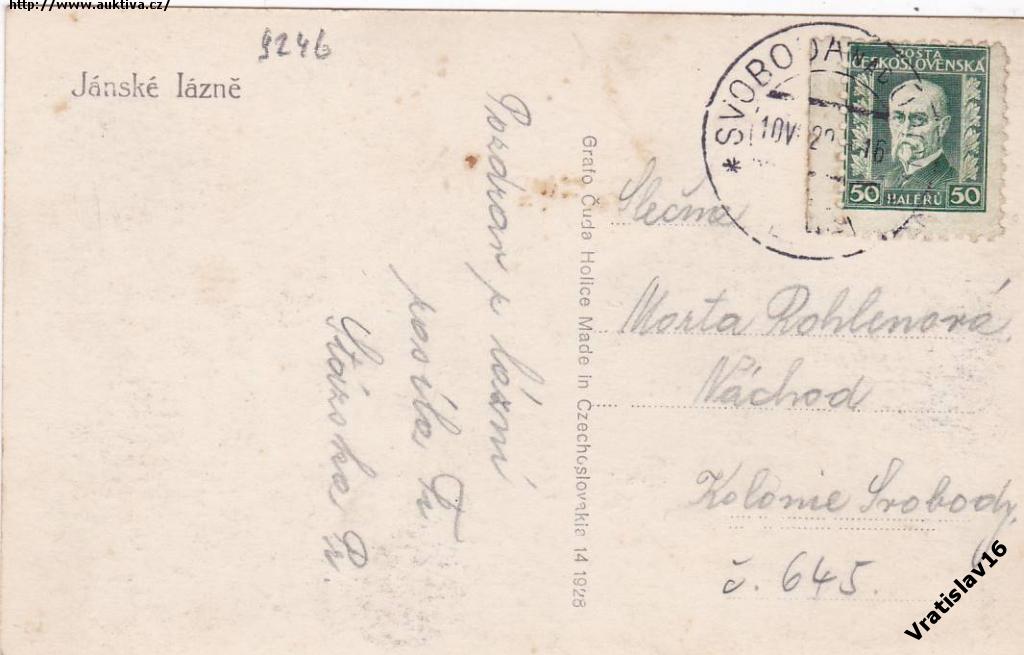 http://www.auktiva.cz/
9246
Jánské lázně
Pozdrav z lázní
posílá Ti
Stázska
Grafo Čuda Holice Made in Czechoslovakia 14 1928
* SVOBODA
10V
16
POŠTA
ČESKOSLOVENSKÁ
50 HALÉŘŮ 50
Slečna
Marta Rohlenová
Náchod
Kolonie Svobody
č. 645.
Vratislav16